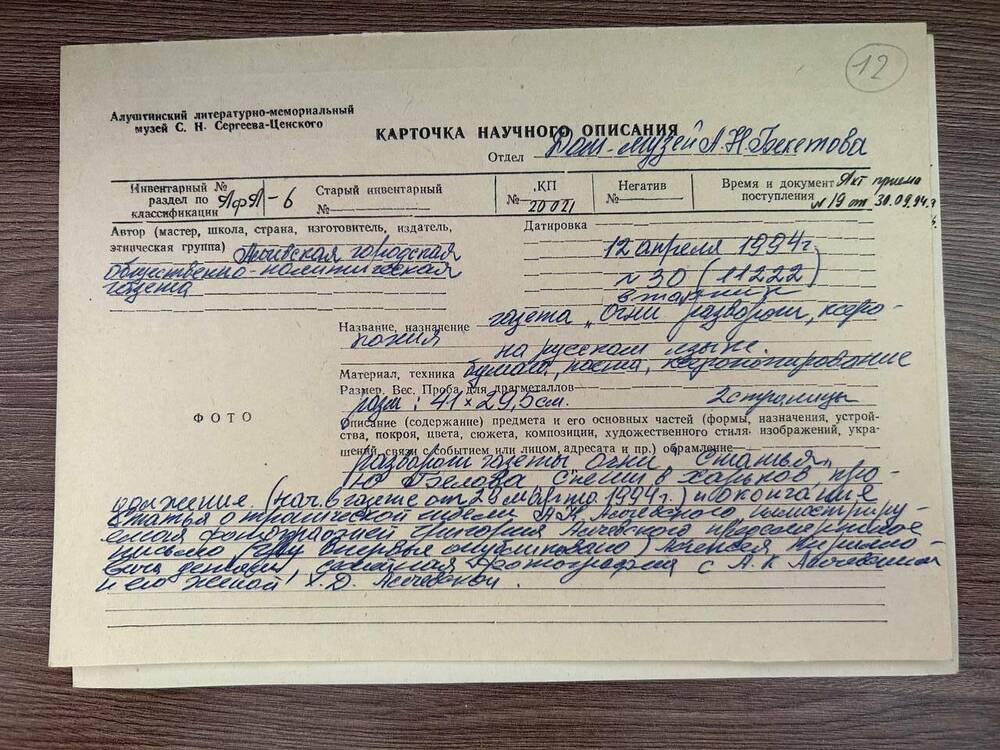 12
Алуштинский литературно-мемориальный
музей С. Н. Сергеева-Ценского
КАРТОЧКА НАУЧНОГО ОПИСАНИЯ
Отдел Дом-музей А.Н Бекетова
Инвентарный № раздел по классификации АфА-6
Старый инвентарный №
КП № 20021
Негатив №
Время и документ поступления Акт приема № 19 от 30.09.94 г
Автор (мастер, школа, страна, изготовитель, издатель,
этническая группа) Алчевская городская
общественно-политическая
газета
Датировка
12 апреля 1994г.
№ 30 (11222)
вторник
Название, назначение газета „Огни разворот, ксеро-
копия
на русском языке.
Материал, техника бумага, паста, ксерокопирование
Размер. Вес. Проба для драгметаллов
разм: 41 × 29,5 см. 2 страницы
ФОТО
Описание (содержание) предмета и его основных частей (формы, назначения, устрой-
ства, покроя, цвета, сюжета, композиции, художественного стиля, изображений, укра-
шений, связи с событием или лицом, адресата и пр.) обрамление
разворот газеты Огни. Статья
Ю Белова Спешив Харьков, про-
должение (нач. в газете от 28 марта 1994г.) и окончание
Статья о трагической гибели А.К Алчевского иллюстриру-
емая фотографией Григория Алчевского предсмертное
письмо (впервые опубликовано) Алексея Кирилло-
вича семейная фотография с А. К Алчевским
и его женой Х. Д. Алчевской.